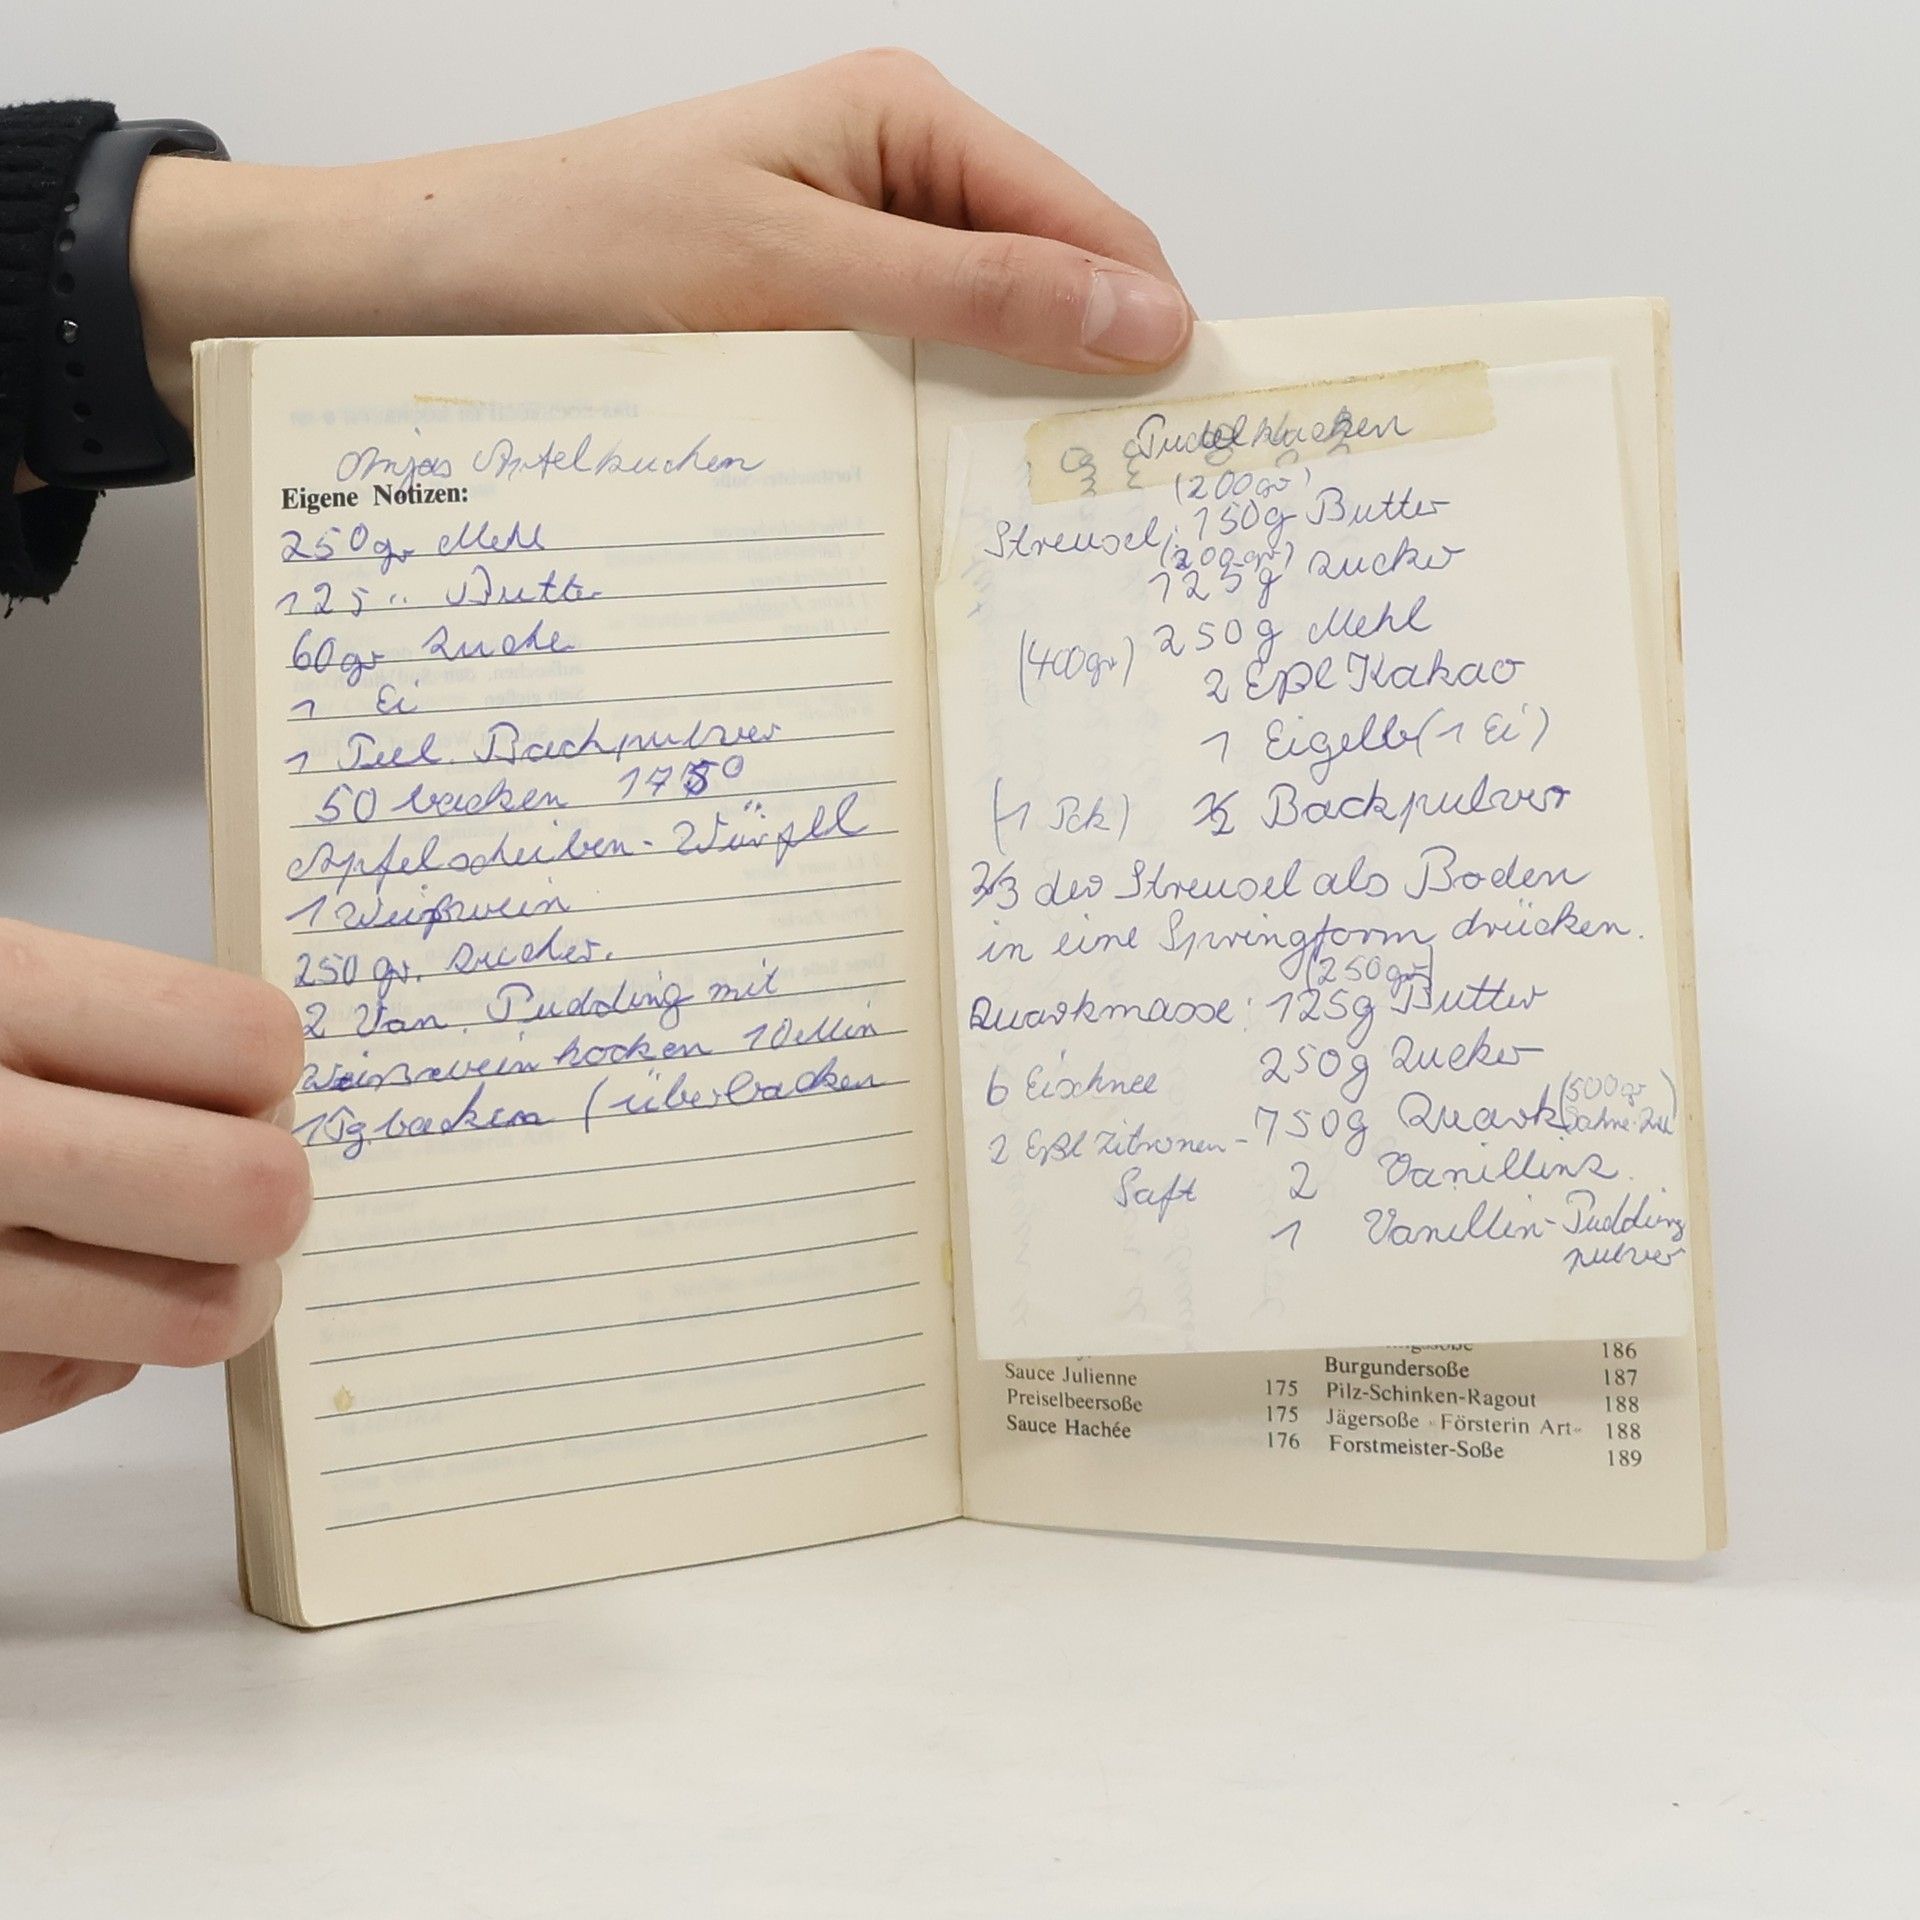 Anjas Apfelkuchen
Eigene Notizen:
250 gr Mehl
125 " Butter
60 gr Zucker
1 Ei
1 Teel. Backpulver
50 backen 175°
Apfelscheiben - Würfel
1 Weißwein
250 gr. Zucker.
2 Van. Pudding mit
Weißwein kochen 10 Min
1 Tg backen (überbacken
Pudelkuchen
(200gr)
Streusel: 150g Butter
(200gr)
125g Zucker
(400gr) 250g Mehl
2 Eßl Kakao
1 Eigelb (1 Ei)
(1 Pck) 1/2 Backpulver
2/3 der Streusel als Boden
in eine Springform drücken.
(250gr)
Quarkmasse: 125g Butter
250g Zucker
6 Eischnee
750g Quark (500gr
2 Eßl Zitronen-
Saft
2 Vanillinz.
1 Vanillin-Pudding
pulver
186
Sauce Julienne 175
Burgundersoße 187
Preiselbeersoße 175
Pilz-Schinken-Ragout 188
Sauce Hachée 176
Jägersoße »Försterin Art« 188
Forstmeister-Soße 189